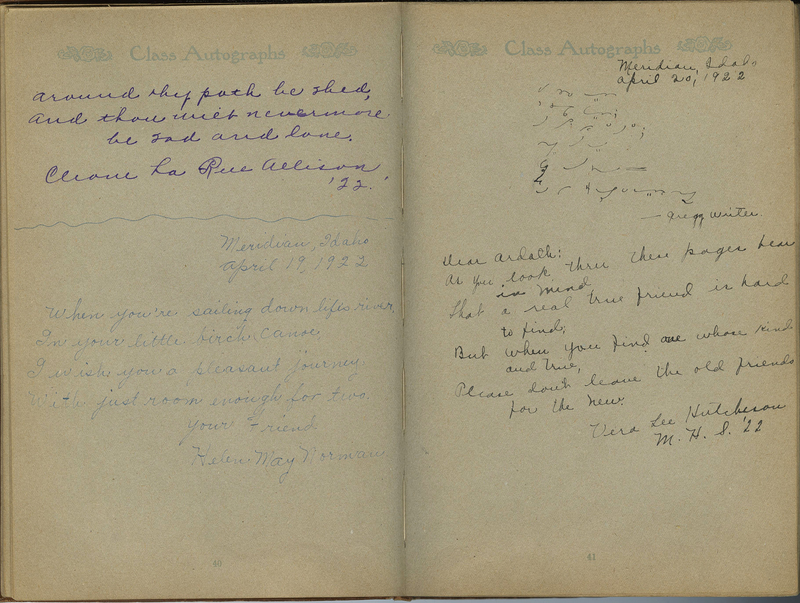 Class Autographs
around thy path be shed,
And thou wilt nevermore
be sad and lone.
Cleone La Rue Allison
'22.'
Meridian, Idaho
April 19, 1922
When you're sailing down life's river,
In your little birch canoe
I wish you a pleasant journey
With just room enough for two.
Your Friend
Helen May Norman
40
Class Autographs
Meridian, Idaho
April 20, 1922
— Gregg Writer.
Dear Ardath:
As you look thru these pages bear
in mind
That a real true friend is hard
to find;
But when you find one whose kind
and true,
Please don't leave the old friends
for the new.
Vera Lee Hutcheson
M. H. S. '22
41